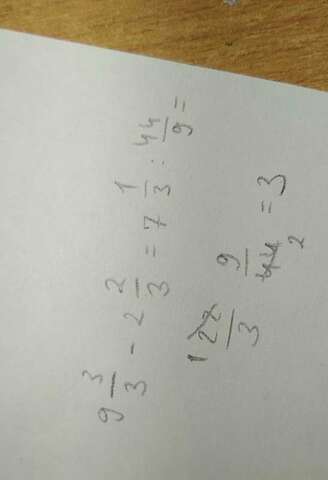 9 3/3 - 2 2/3 = 7 1/3 : 44/9 =
1 22/3 9/44 2 = 3